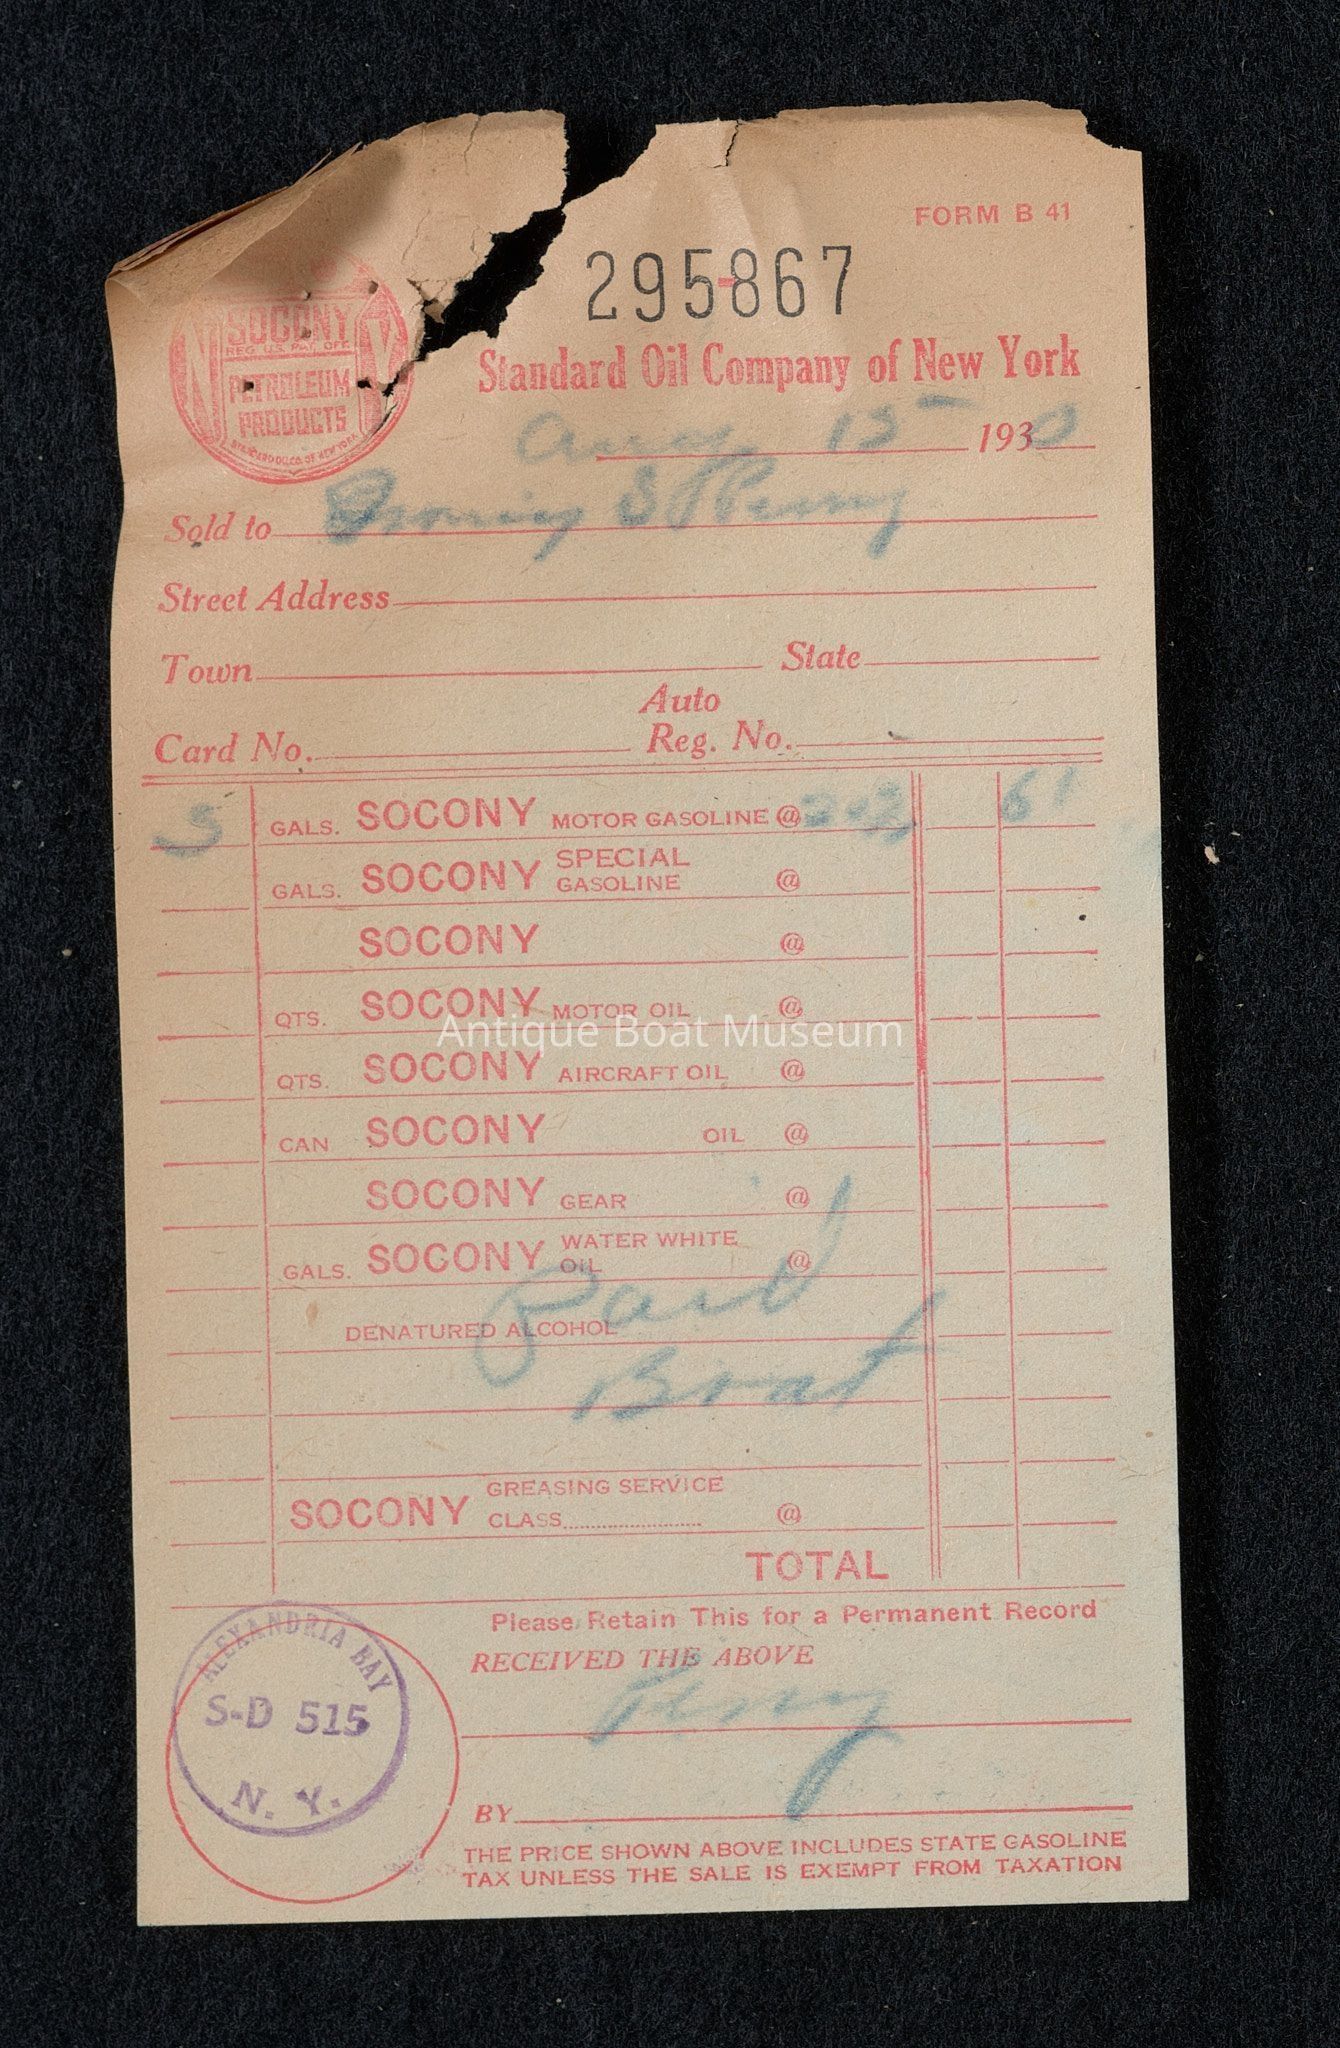 FORM B 41
295867
SOCONY
REG. U.S. PAT. OFF.
PETROLEUM
PRODUCTS
STANDARD OIL CO. OF NEW YORK
Standard Oil Company of New York
Aug. 15 1930
Sold to S Perry
Street Address
Town State
Auto
Card No. Reg. No.
5 GALS. SOCONY MOTOR GASOLINE @ 61
GALS. SOCONY SPECIAL GASOLINE @
SOCONY @
QTS. SOCONY MOTOR OIL @
Antique Boat Museum
QTS. SOCONY AIRCRAFT OIL @
CAN SOCONY OIL @
SOCONY GEAR @
GALS. SOCONY WATER WHITE OIL @
Paid
DENATURED ALCOHOL
Boat
SOCONY GREASING SERVICE
CLASS @
TOTAL
Please Retain This for a Permanent Record
RECEIVED THE ABOVE
Perry
BY
ALEXANDRIA BAY
S-D 515
N. Y.
THE PRICE SHOWN ABOVE INCLUDES STATE GASOLINE
TAX UNLESS THE SALE IS EXEMPT FROM TAXATION